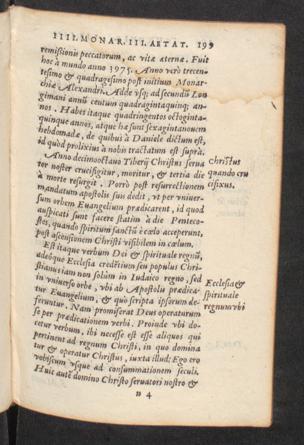 IIII. MONAR. III. AETAT. 199
remissionis peccatorum, ac vitæ æternæ. Fuit
hoc à mundo anno 1975. Anno verò trecen-
tesimo & quadragesimo post initium Monar-
chiæ Alexandri. Adde vsq; ad secundũ Lon
gimani annũ centum quadragintaquinq; an-
nos. Habes itaque quadringentos octoginta-
quinque annos, atque hæ sunt sexagintanouem
hebdomadæ, de quibus à Daniele dictum est,
id quòd prolixius à nobis tractatum est suprà.
Anno decimooctauo Tiberij Christus serua
ter noster crucifigitur, moritur, & tertia die
à morte resurgit. Porrò post resurrectionem
mandatum apostolis suis dedit, vt per vniuer-
sum orbem Euangelium prædicarent, id quod
auspicati sunt facere statim à die Penteco-
stes, quando spiritum sanctũ è cœlo acceperunt,
post ascensionem Christi visibilem in cælum.
Christus
quando cru
cifixus.
Est itaque verbum Dei & spirituale regnũ,
adeóque Ecclesia credẽtium seu populus Chri-
stianus iam non solùm in Iudaico regno, sed
in vniuerso orbe, vbi ab Apostolis prædica-
tur Euangelium, & quò scripta ipsorum de-
feruntur. Nam promiserat Deus operaturum
se per prædicationem verbi. Proinde vbi do-
cetur verbum, ibi necesse est esse aliquos qui
pertinent ad regnum Christi, in quo domina
tur & operatur Christus, iuxta illud: Ego ero
vobiscum vsque ad consummationem seculi.
Huic autẽ domino Christo seruatori nostro &
Ecclesia &
spirituale
regnum vbi
D 4